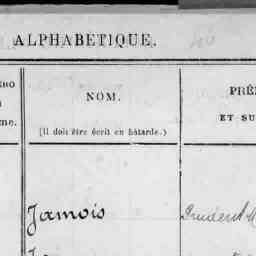 ALPHABÉTIQUE.
NOM.
PRÉ
ET SU
me.
(Il doit être écrit en bâtarde.)
Jamois
Prudent M